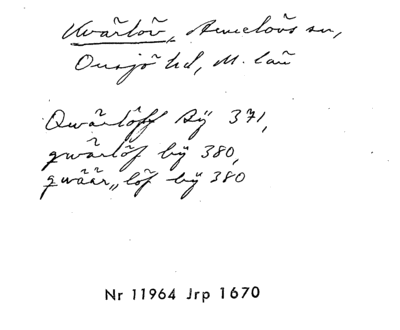 Kvärlöv, Annelövs sn,
Onsjö hd, M. län
Qwärlöff Bÿ 371,
qwärlöf bÿ 380,
qwäär„ löf bÿ 380
Nr 11964 Jrp 1670